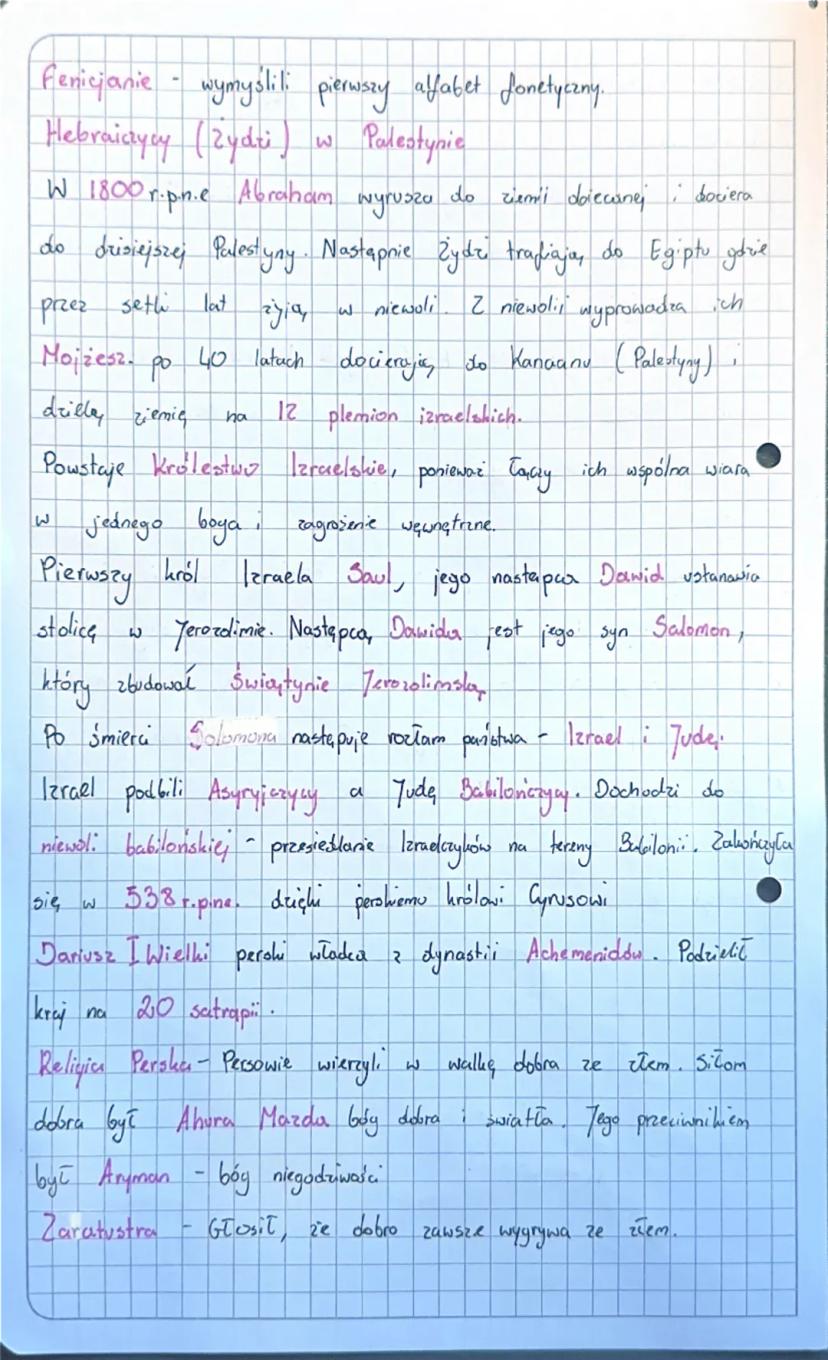 Fenicjanie - wymyślili pierwszy alfabet fonetyczny.
Hebraiczycy (Żydzi) w Palestynie
W 1800 r.p.n.e Abraham wyrusza do ziemii obiecanej i dociera
do dzisiejszej Palestyny. Następnie Żydzi trafiają do Egiptu gdzie
przez setki lat żyją w niewoli. Z niewolii wyprowadza ich
Mojżesz. po 40 latach docierają do Kanaanu (Palestyny) i
dzielą ziemię na 12 plemion izraelskich.
Powstaje Królestwo Izraelskie, ponieważ łączy ich wspólna wiara
w jednego boga i zagrożenie wewnętrzne.
Pierwszy król Izraela Saul, jego następca Dawid ustanawia
stolicę w Jerozolimie. Następcą Dawida jest jego syn Salomon,
który zbudował Świątynie Jerozolimską
Po śmierci Solomona następuje rozłam państwa - Izrael i Judę.
Izrael podbili Asyryjczycy a Judę Babilończycy. Dochodzi do
niewoli babilońskiej - przesiedlanie Izraelczyków na tereny Babilonii. Zakończyła
się w 538 r.p.ne. dzięki perskiemu królowi Cyrusowi
Dariusz I Wielki perski władca z dynastii Achemenidów. Podzielił
kraj na 20 satrapii.
Religia Perska - Persowie wierzyli w walkę dobra ze złem. Siłom
dobra był Ahura Mazda bóg dobra i światła. Jego przeciwnikiem
był Aryman - bóg niegodziwości
Zaratustra - Głosił, że dobro zawsze wygrywa ze złem.